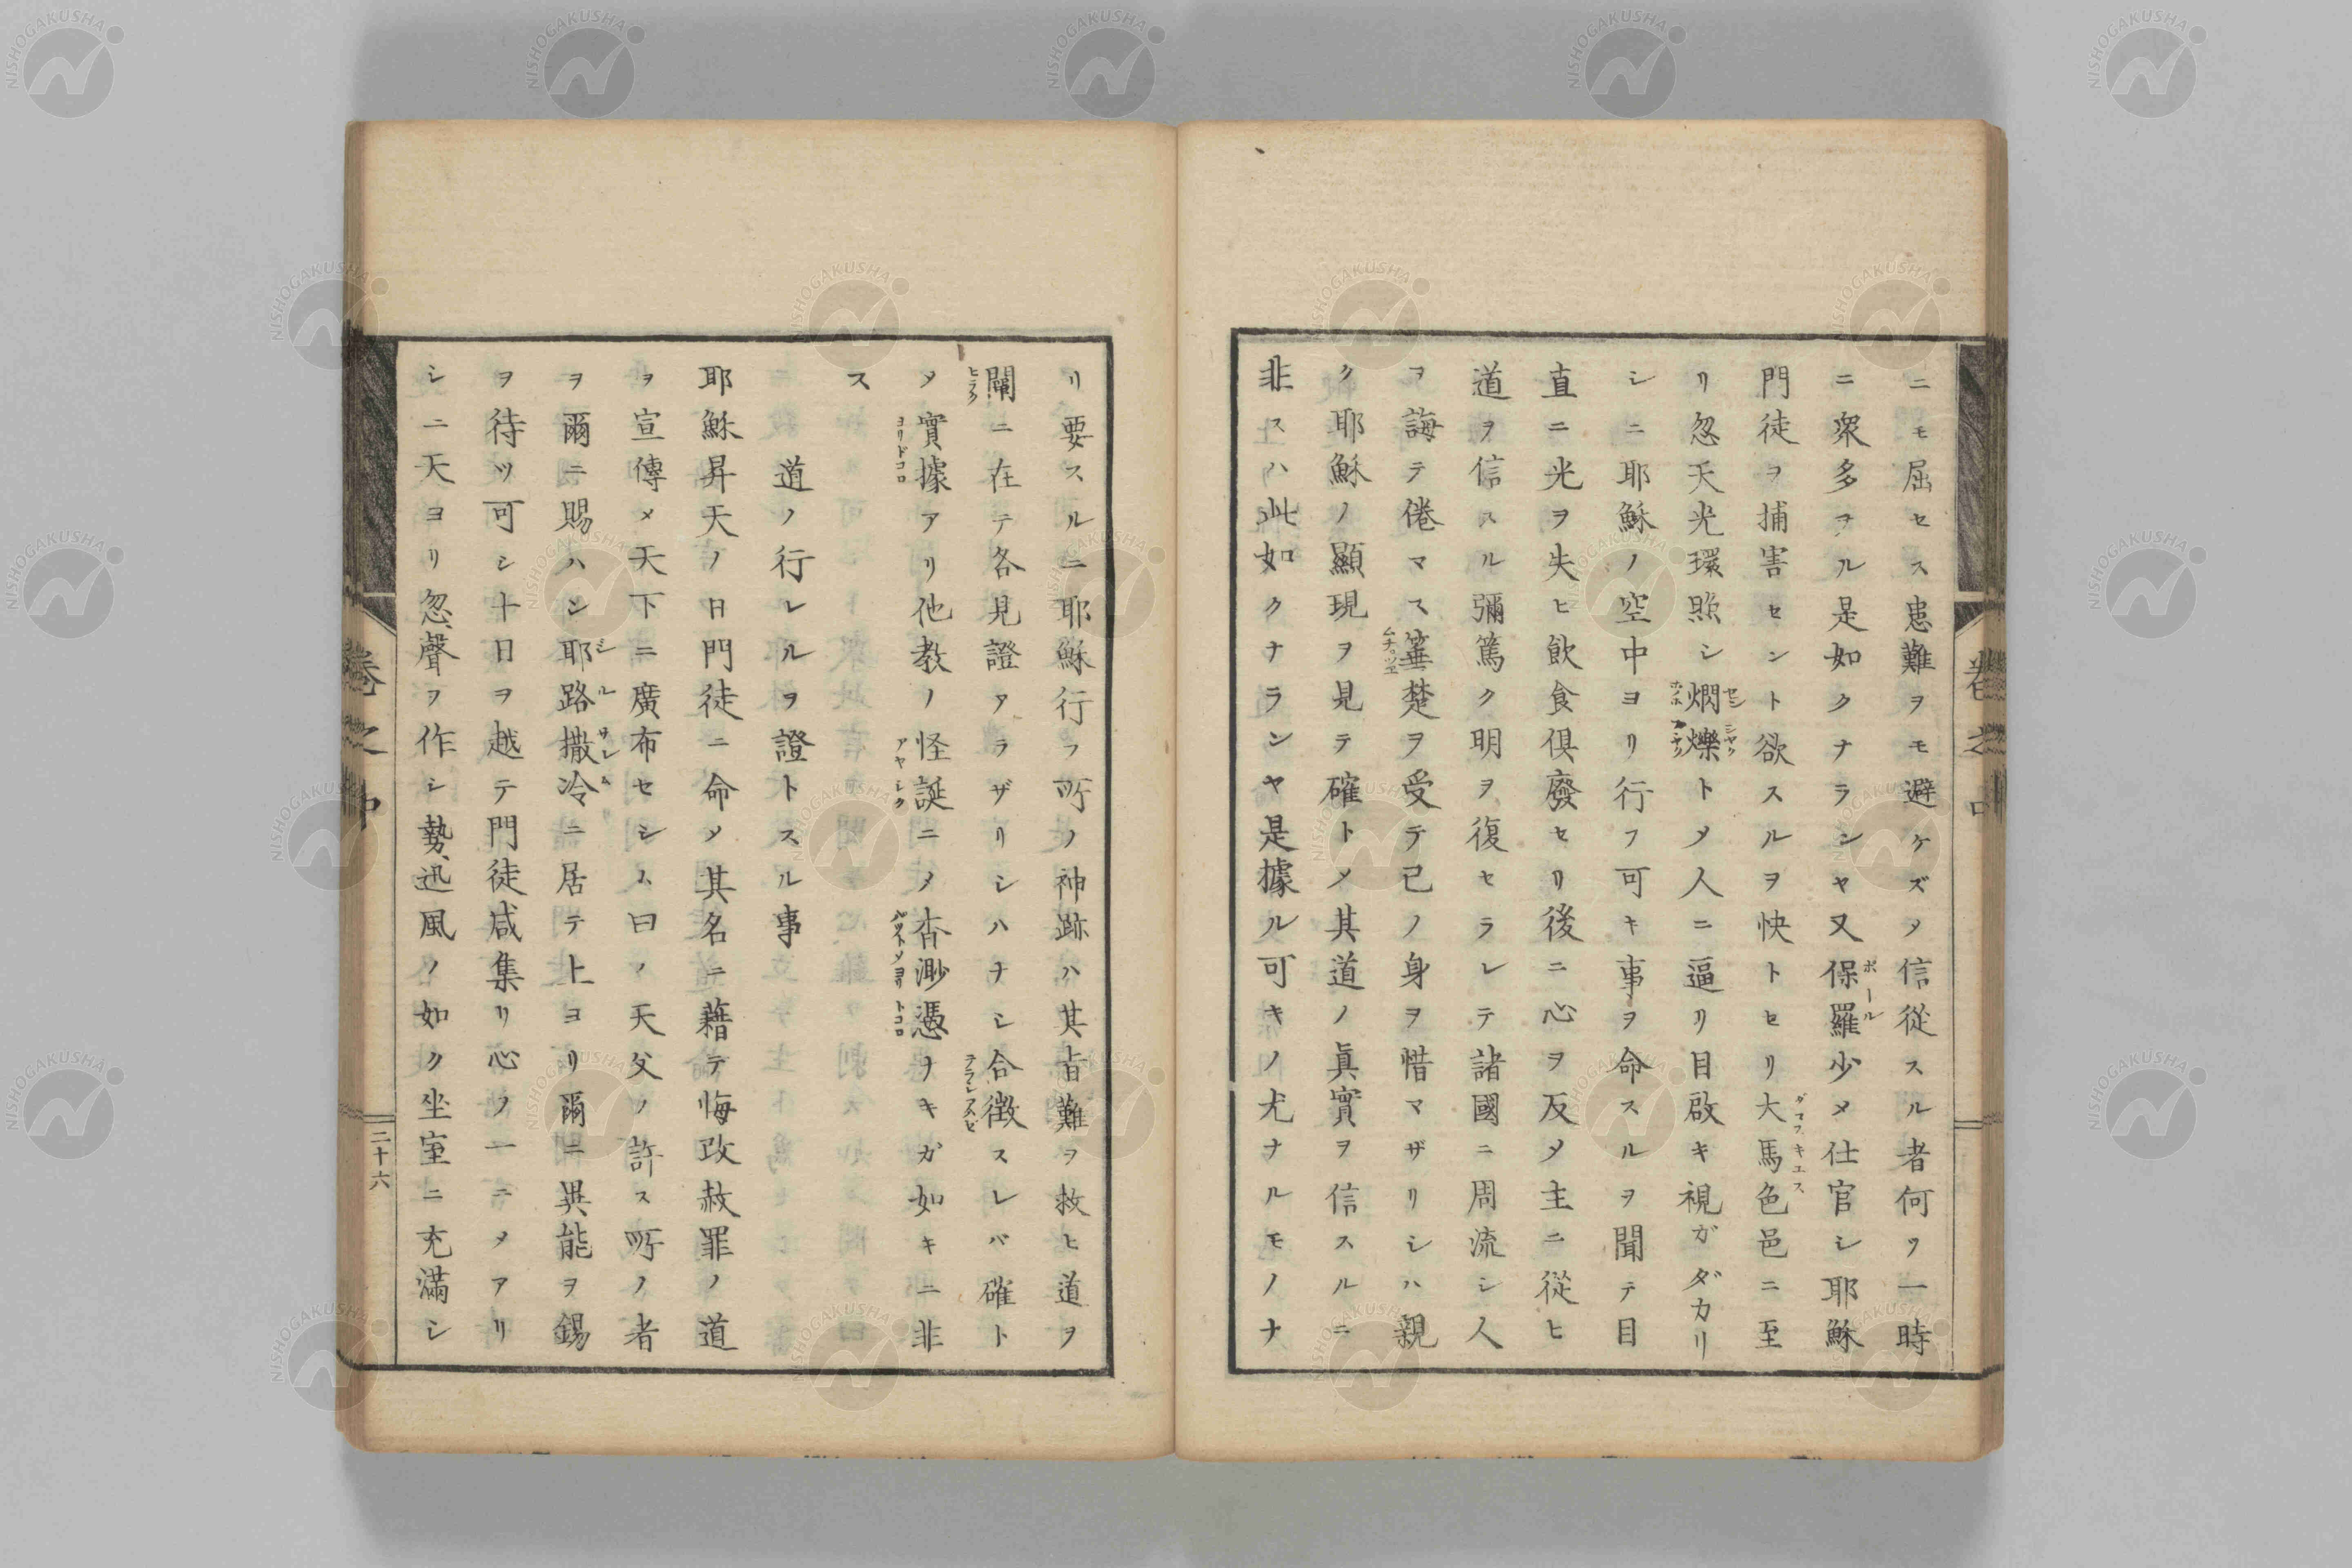 ニモ屈セス患難ヲモ避ケズメ信従スル者何ソ一時
ニ衆多ヲル是如クナランヤ又保羅少メ仕官シ耶穌
ポール
門徒ヲ捕害セント欲スルヲ快トセリ大馬色邑ニ至
ダマスキエス
リ忽天光環照シ燗爍トメ人ニ逼リ目啟キ視ガダカリ
シニ耶穌ノ空中ヨリ行フ可キ事ヲ命スルヲ聞テ目
直ニ光ヲ失ヒ飲食倶廢セリ後ニ心ヲ反メ主ニ從ヒ
道ヲ信スル彌篤ク明ヲ復セラレテ諸國ニ周流シ人
ヲ誨テ倦マス箠楚ヲ受テ己ノ身ヲ惜マザリシハ親
ク耶穌ノ顯現ヲ見テ確トメ其道ノ眞實ヲ信スルニ
非スハ此如クナランヤ是據ル可キノ尤ナルモノナ
リ要スルニ耶穌行フ所ノ神跡ハ其旹難ヲ救ヒ道ヲ
闡ニ在テ各見證アラザリシハナシ合徴スレバ確ト
ヒラク
メ實據アリ他教ノ怪誕ニメ杳渺憑ヲキガ如キニ非
ヨリドコロ
アヤシク
ス
道ノ行レルヲ證トスル事
耶穌昇天ノ日門徒ニ命メ其名ニ藉テ悔改赦罪ノ道
ヲ宣傳メ天下ニ廣布セシム曰ノ天父ノ許ス所ノ者
ヲ爾ニ賜ハン耶路撒冷ニ居テ上ヨリ爾ニ異能ヲ錫
ヲ待ツ可シ十日ヲ越テ門徒咸集リ心ヲ一ニメアリ
シニ天ヨリ忽聲ヲ作シ勢迅風ノ如ク坐室ニ充滿シ
二十六
NISHOGAKUSHA